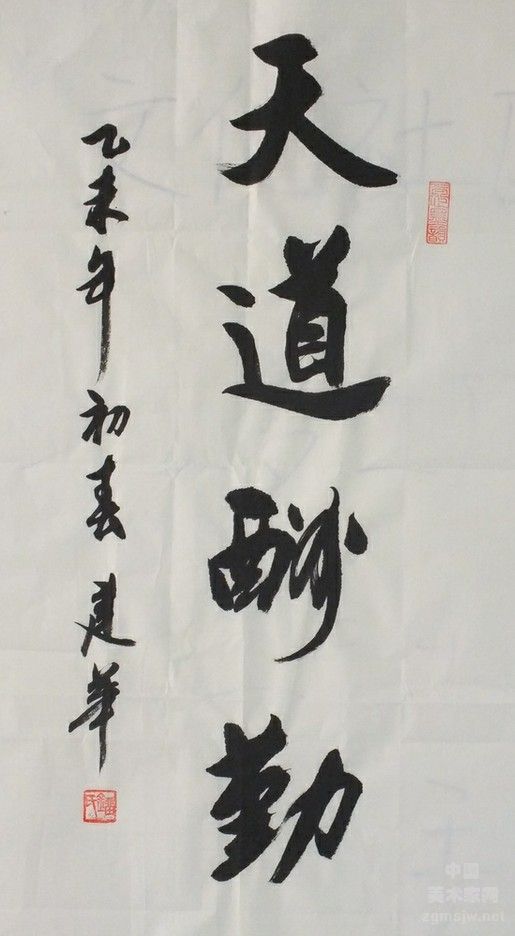 天道酬勤
乙未年初春建華
中国
美术家网
zgmsjw.net